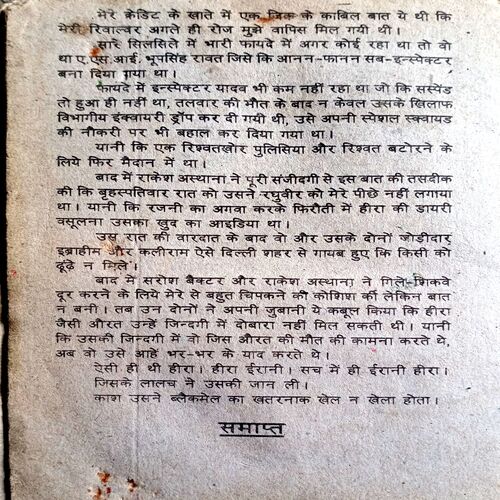 मेरे क्रेडिट के खाते में एक जिक्र के काबिल बात ये थी कि
मेरी रिवाल्वर अगले ही रोज मुझे वापिस मिल गयी थी।
सारे सिलसिले में भारी फायदे में अगर कोई रहा था तो वो
था ए.एस.आई. भूपसिंह रावत जिसे कि आनन-फानन सब-इन्स्पेक्टर
बना दिया गया था।
फायदे में इन्स्पेक्टर यादव भी कम नहीं रहा था जो कि सस्पेंड
तो हुआ ही नहीं था, तलवार की मौत के बाद न केवल उसके खिलाफ
विभागीय इंक्वायरी ड्रॉप कर दी गयी थी, उसे अपनी स्पेशल स्क्वायड
की नौकरी पर भी बहाल कर दिया गया था।
यानी कि एक रिश्वतखोर पुलिसिया और रिश्वत बटोरने के
लिये फिर मैदान में था।
बाद में राकेश अस्थाना ने पूरी संजीदगी से इस बात की तसदीक
की कि बृहस्पतिवार रात को उसने रघुवीर को मेरे पीछे नहीं लगाया
था। यानी कि रजनी का अगवा करके फिरौती में हीरा की डायरी
वसूलना उसका खुद का आइडिया था।
उस रात की वारदात के बाद वो और उसके दोनों जोड़ीदार
इब्राहीम और कलीराम ऐसे दिल्ली शहर से गायब हुए कि किसी को
ढूंढे न मिले।
बाद में सरोश बैक्टर और राकेश अस्थाना ने गिले-शिकवे
दूर करने के लिये मेरे से बहुत चिपकने की कोशिश की लेकिन बात
न बनी। तब उन दोनों ने अपनी जुबानी ये कबूल किया कि हीरा
जैसी औरत उन्हें जिन्दगी में दोबारा नहीं मिल सकती थी। यानी
कि उसकी जिन्दगी में वो जिस औरत की मौत की कामना करते थे,
अब वो उसे आहें भर-भर के याद करते थे।
ऐसी ही थी हीरा। हीरा ईरानी। सच में ही ईरानी हीरा।
जिसके लालच ने उसकी जान ली।
काश उसने ब्लैकमेल का खतरनाक खेल न खेला होता।
समाप्त